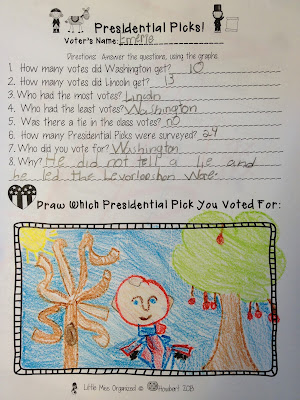 Presidential Picks!
Voter's Name: Emerie
Directions: Answer the questions, using the graphs.
1. How many votes did Washington get? 10
2. How many votes did Lincoln get? 13
3. Who had the most votes? Lincoln
4. Who had the least votes? Washington
5. Was there a tie in the class votes? no
6. How many Presidential Picks were surveyed? 24
7. Who did you vote for? Washington
8. Why? He did not tell a lie and
he led the Levorlooshan Wore.
Draw Which Presidential Pick You Voted For:
Little Miss Organized © Howbert 2013